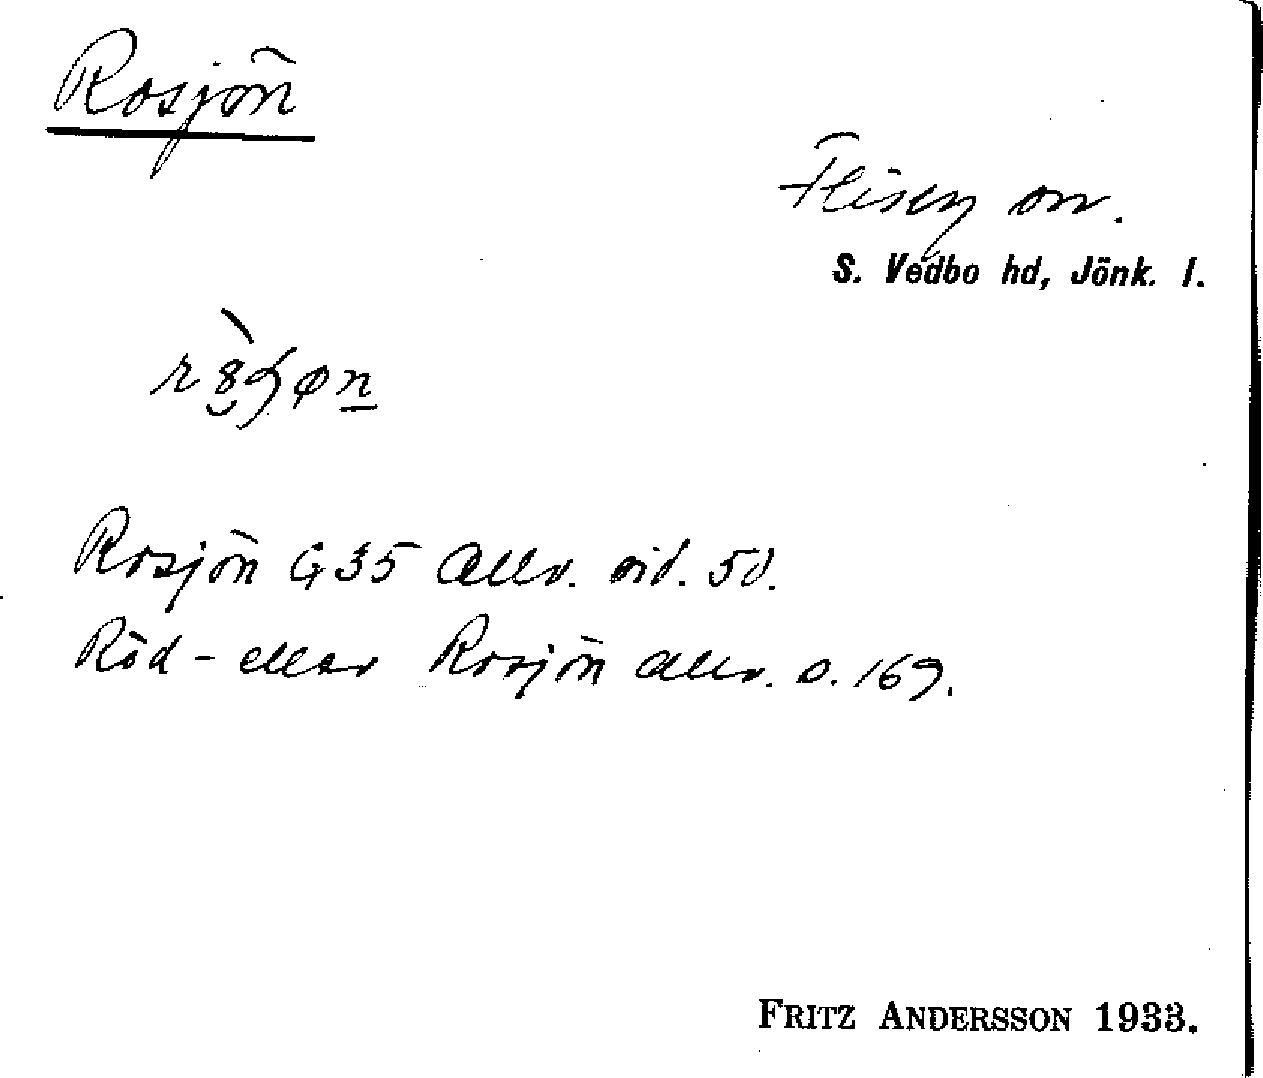 Rosjön
Flisby sn.
S. Vedbo hd, Jönk. l.
Rosjön G35 Allv. sid. 50.
Röd- eller Rosjön Allv. s. 169.
FRITZ ANDERSSON 1933.